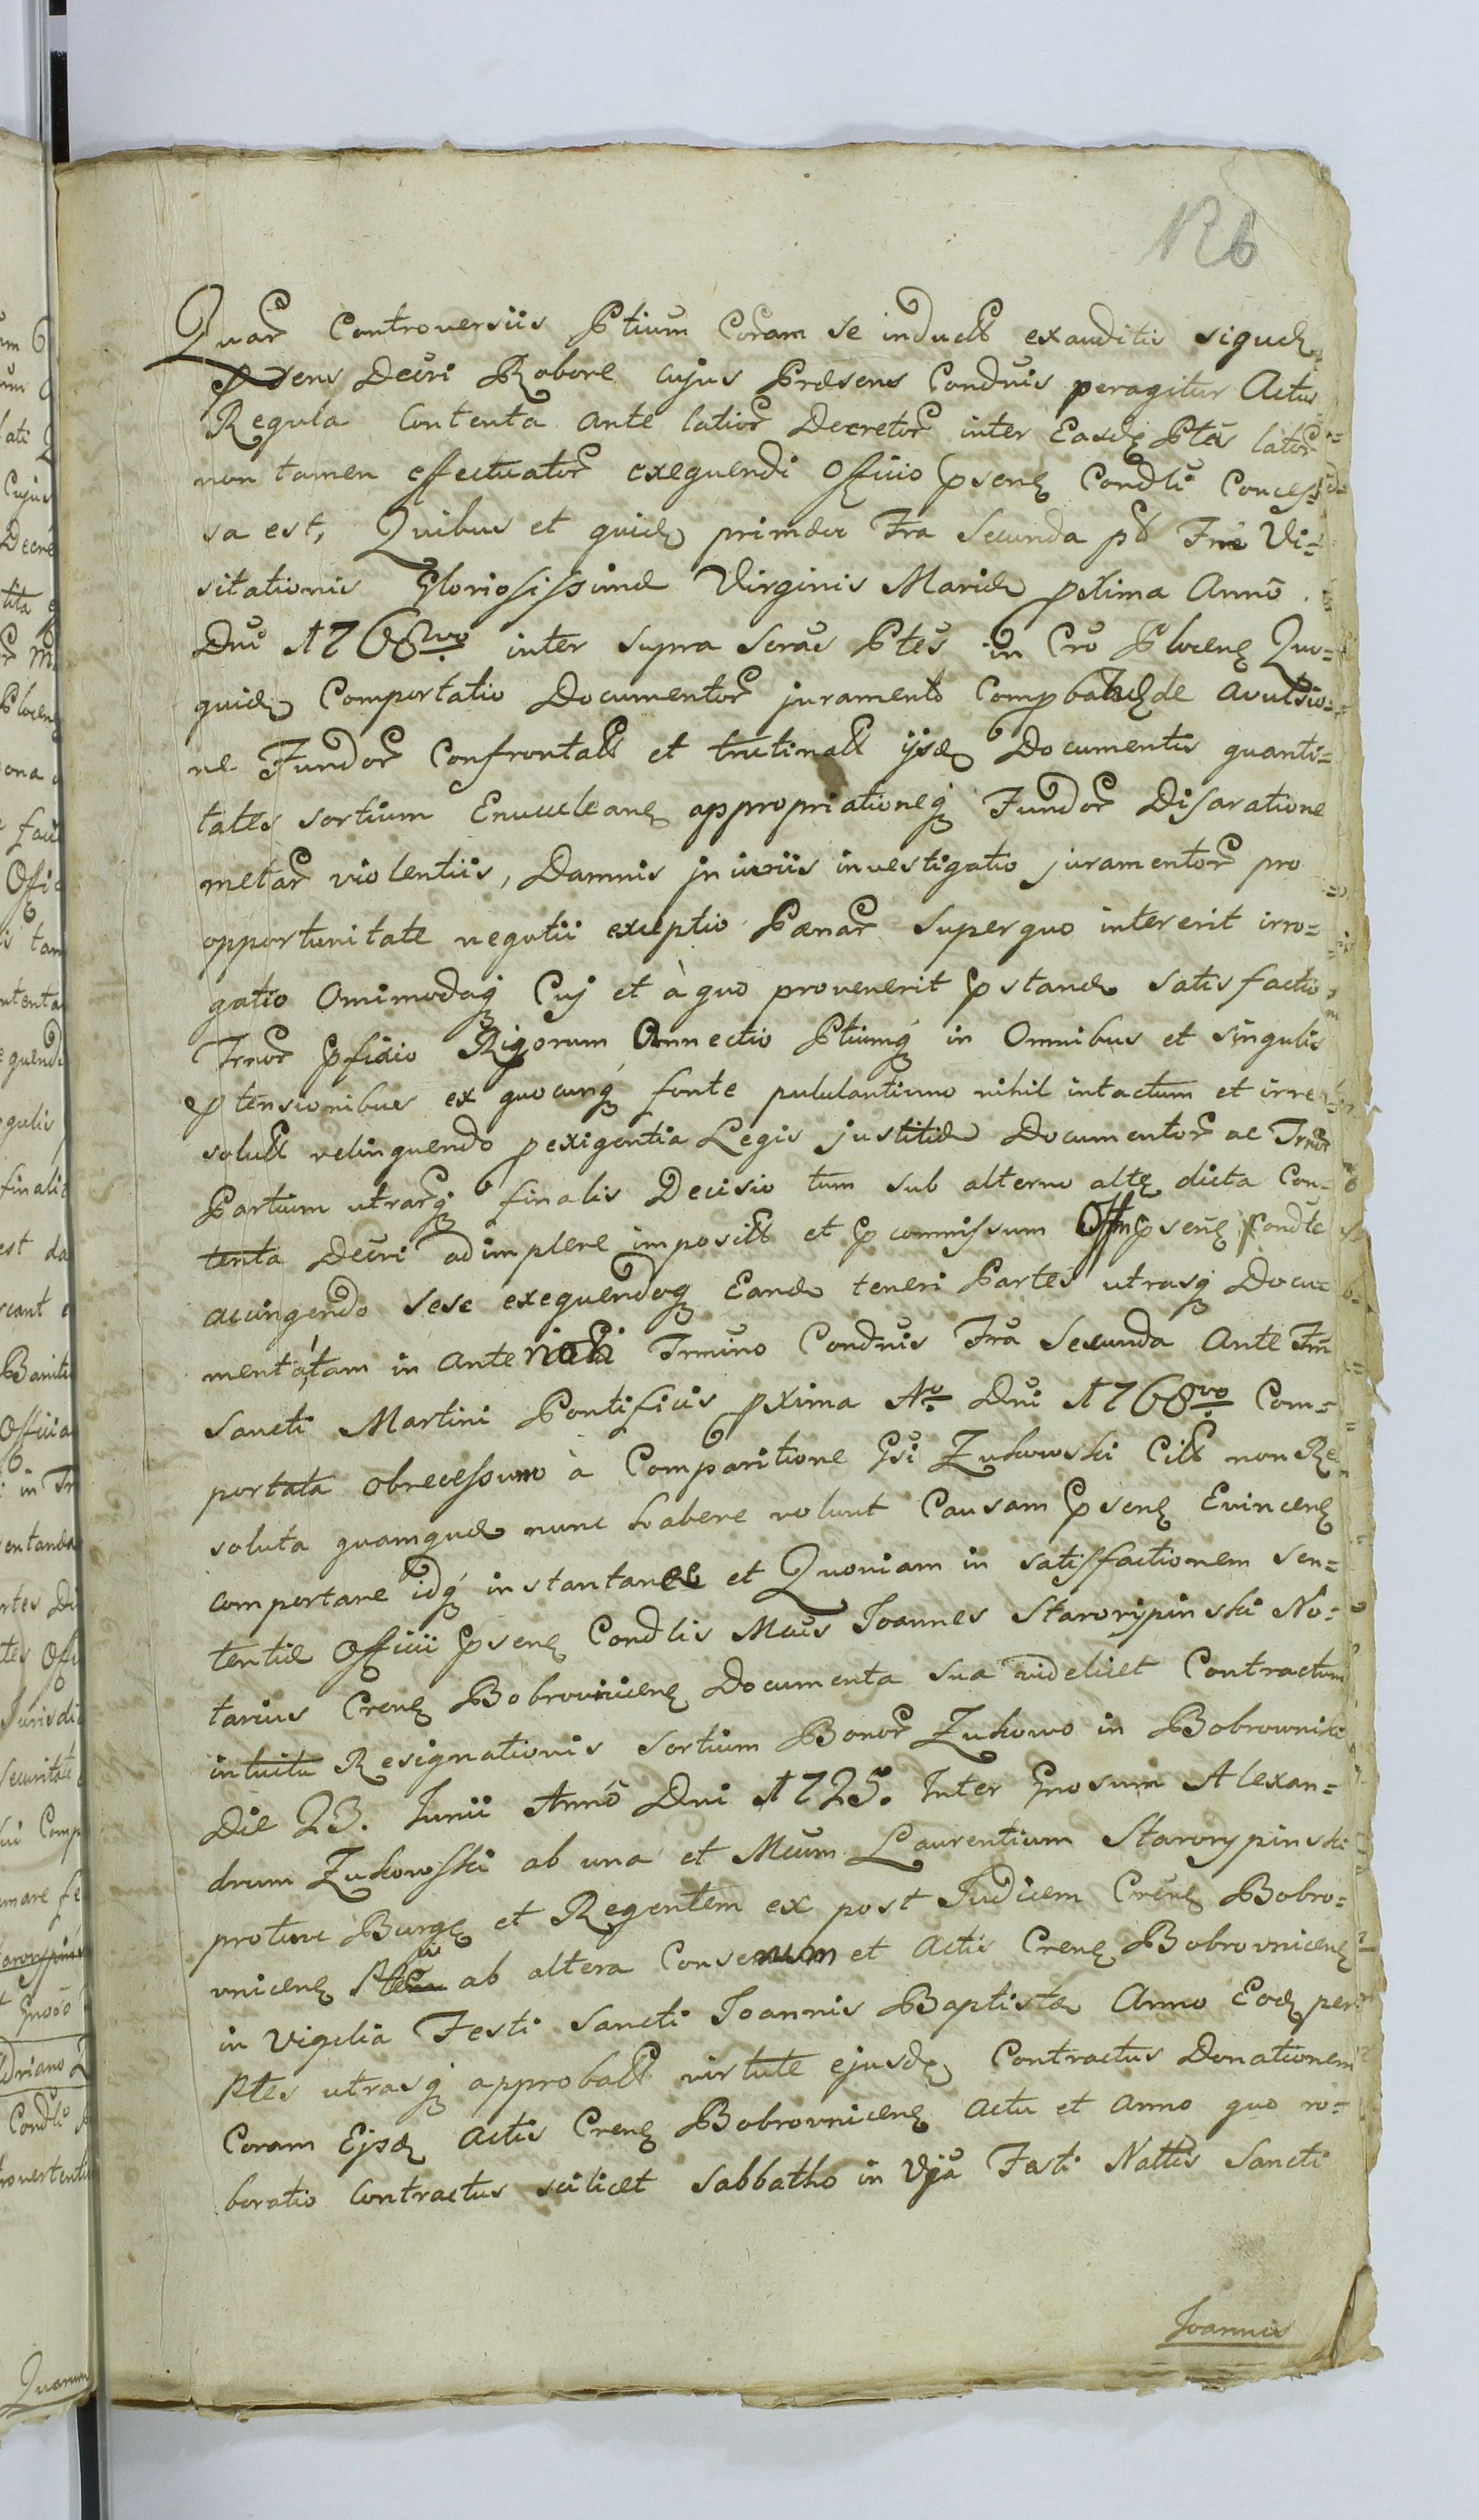 126
Quar Controversiis Ptium Coram se induct exauditis siquid
psens Decri Robore cujus Præsens Condnis peragitur Actus
Regula Contenta ante latior Decretor inter Easd Ptes lator
non tamen effectuator exequendi Officio psen Condli Conces=
sa est, Quibus et quid primæv Fra Secunda pt Fm Vi=
sitationis Gloriosissimæ Virginis Mariæ pxima Anno
Dni 1768vo inter supra scras Ptes in Cro Plocen Quo=
quid Comportatio Documentor juramento Compbatd de avulsio=
ne Fundor Confrontatt et trutinatt ijsd Documentis quanti=
tates sortium Enucclean appropriationeq Fundor Disaratione
metar violentiis, Damnis injuriis investigatio juramentor pro
opportunitate negotii exceptio Pænar superquo intererit irro=
gatio Omimodaq Cuj et à quo provenerit pstand satisfactio
Trnor pfixio Rigorum Annectio Ptiumq in Omnibus et singulis
ptensionibus ex quocunq fonte pululantium nihil intactum et irre
solutt relinquendo pexigentia Legis justitiæ Documentor ac Trnor
Partium utrarq finalis Decisio tum sub alterno alte dicta Con=
tenta Decri adimplere imposit et pcommissum Offm psen Condle
accingendo sese exequendoq Eand teneri Partes utrasq Docu=
mentá tam in Anteriori Trmino Condnis Fra Secunda Ante Fm
Sancti Martini Pontificis pxima Ao Dni 1768vo Com=
portata obrecessum à Comparitione Gsi Zukowski Citt non Re
soluta quamquæ nunc habere volunt Causam psen Evincen
comportare idq instantanee et Quoniam in satisfactionem sen=
tentiæ Officii psen Condlis Mcus Joannes Starorypinski No=
tarius Cren Bobrovnicen Documenta sua videlicet Contractum
intuitu Resignationis sortium Bonor Zukowo in Bobrowniki
Die 23. Junii Anno Dni 1725. Inter Gnosum Alexan=
drum Zukowski ab una et Mcum Laurentium Starorypinski
protunc Burg et Regentem ex post Judicem Cren Bobro=
vnicen ab altera Conse et Actis Cren Bobrovnicen
in Vigilia Festi Sancti Joannis Baptistæ Anno Eod per
Ptes utrasq approbatt virtute ejusd Contractus Donationem
Coram Ejsd Actis Cren Bobrovnicen Actu et Anno quo ro=
boratio Contractus scilicet Sabbatho in Vgia Festi Nattis Sancti
Joannis